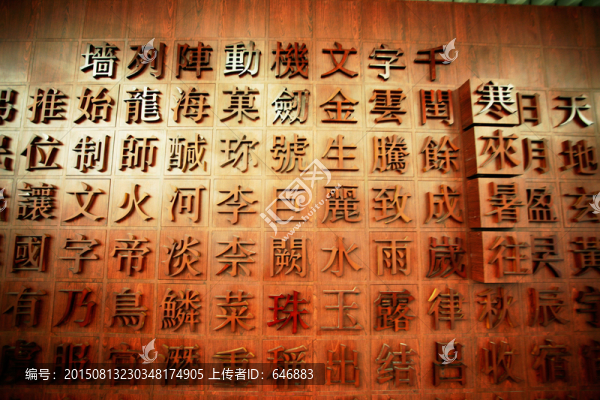 千字文機動陣列墙
天地玄黃宇宙
日月盈昃辰宿
寒來暑往秋收
閏餘成歲律呂
雲騰致雨露结
金生麗水玉出
劒號巨闕珠稱
菓珎李柰菜重
海醎河淡鱗潛
龍師火帝鳥官
始制文字乃服
推位讓國有虞
编号:20150813230348174905 上传者ID:646883